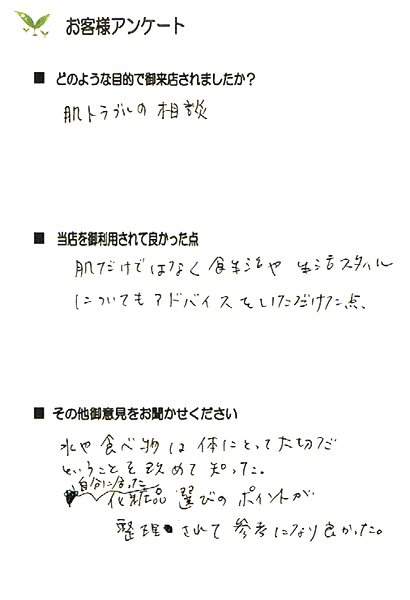 お客様アンケート
■ どのような目的で御来店されましたか？
肌トラブルの相談
■ 当店を御利用されて良かった点
肌だけではなく食生活や生活スタイル
についてもアドバイスをいただけた点、
■ その他御意見をお聞かせください
水や食べ物は体にとって大切だ
ということを改めて知った。
自分に合った
化粧品選びのポイントが
整理されて参考になり良かった。